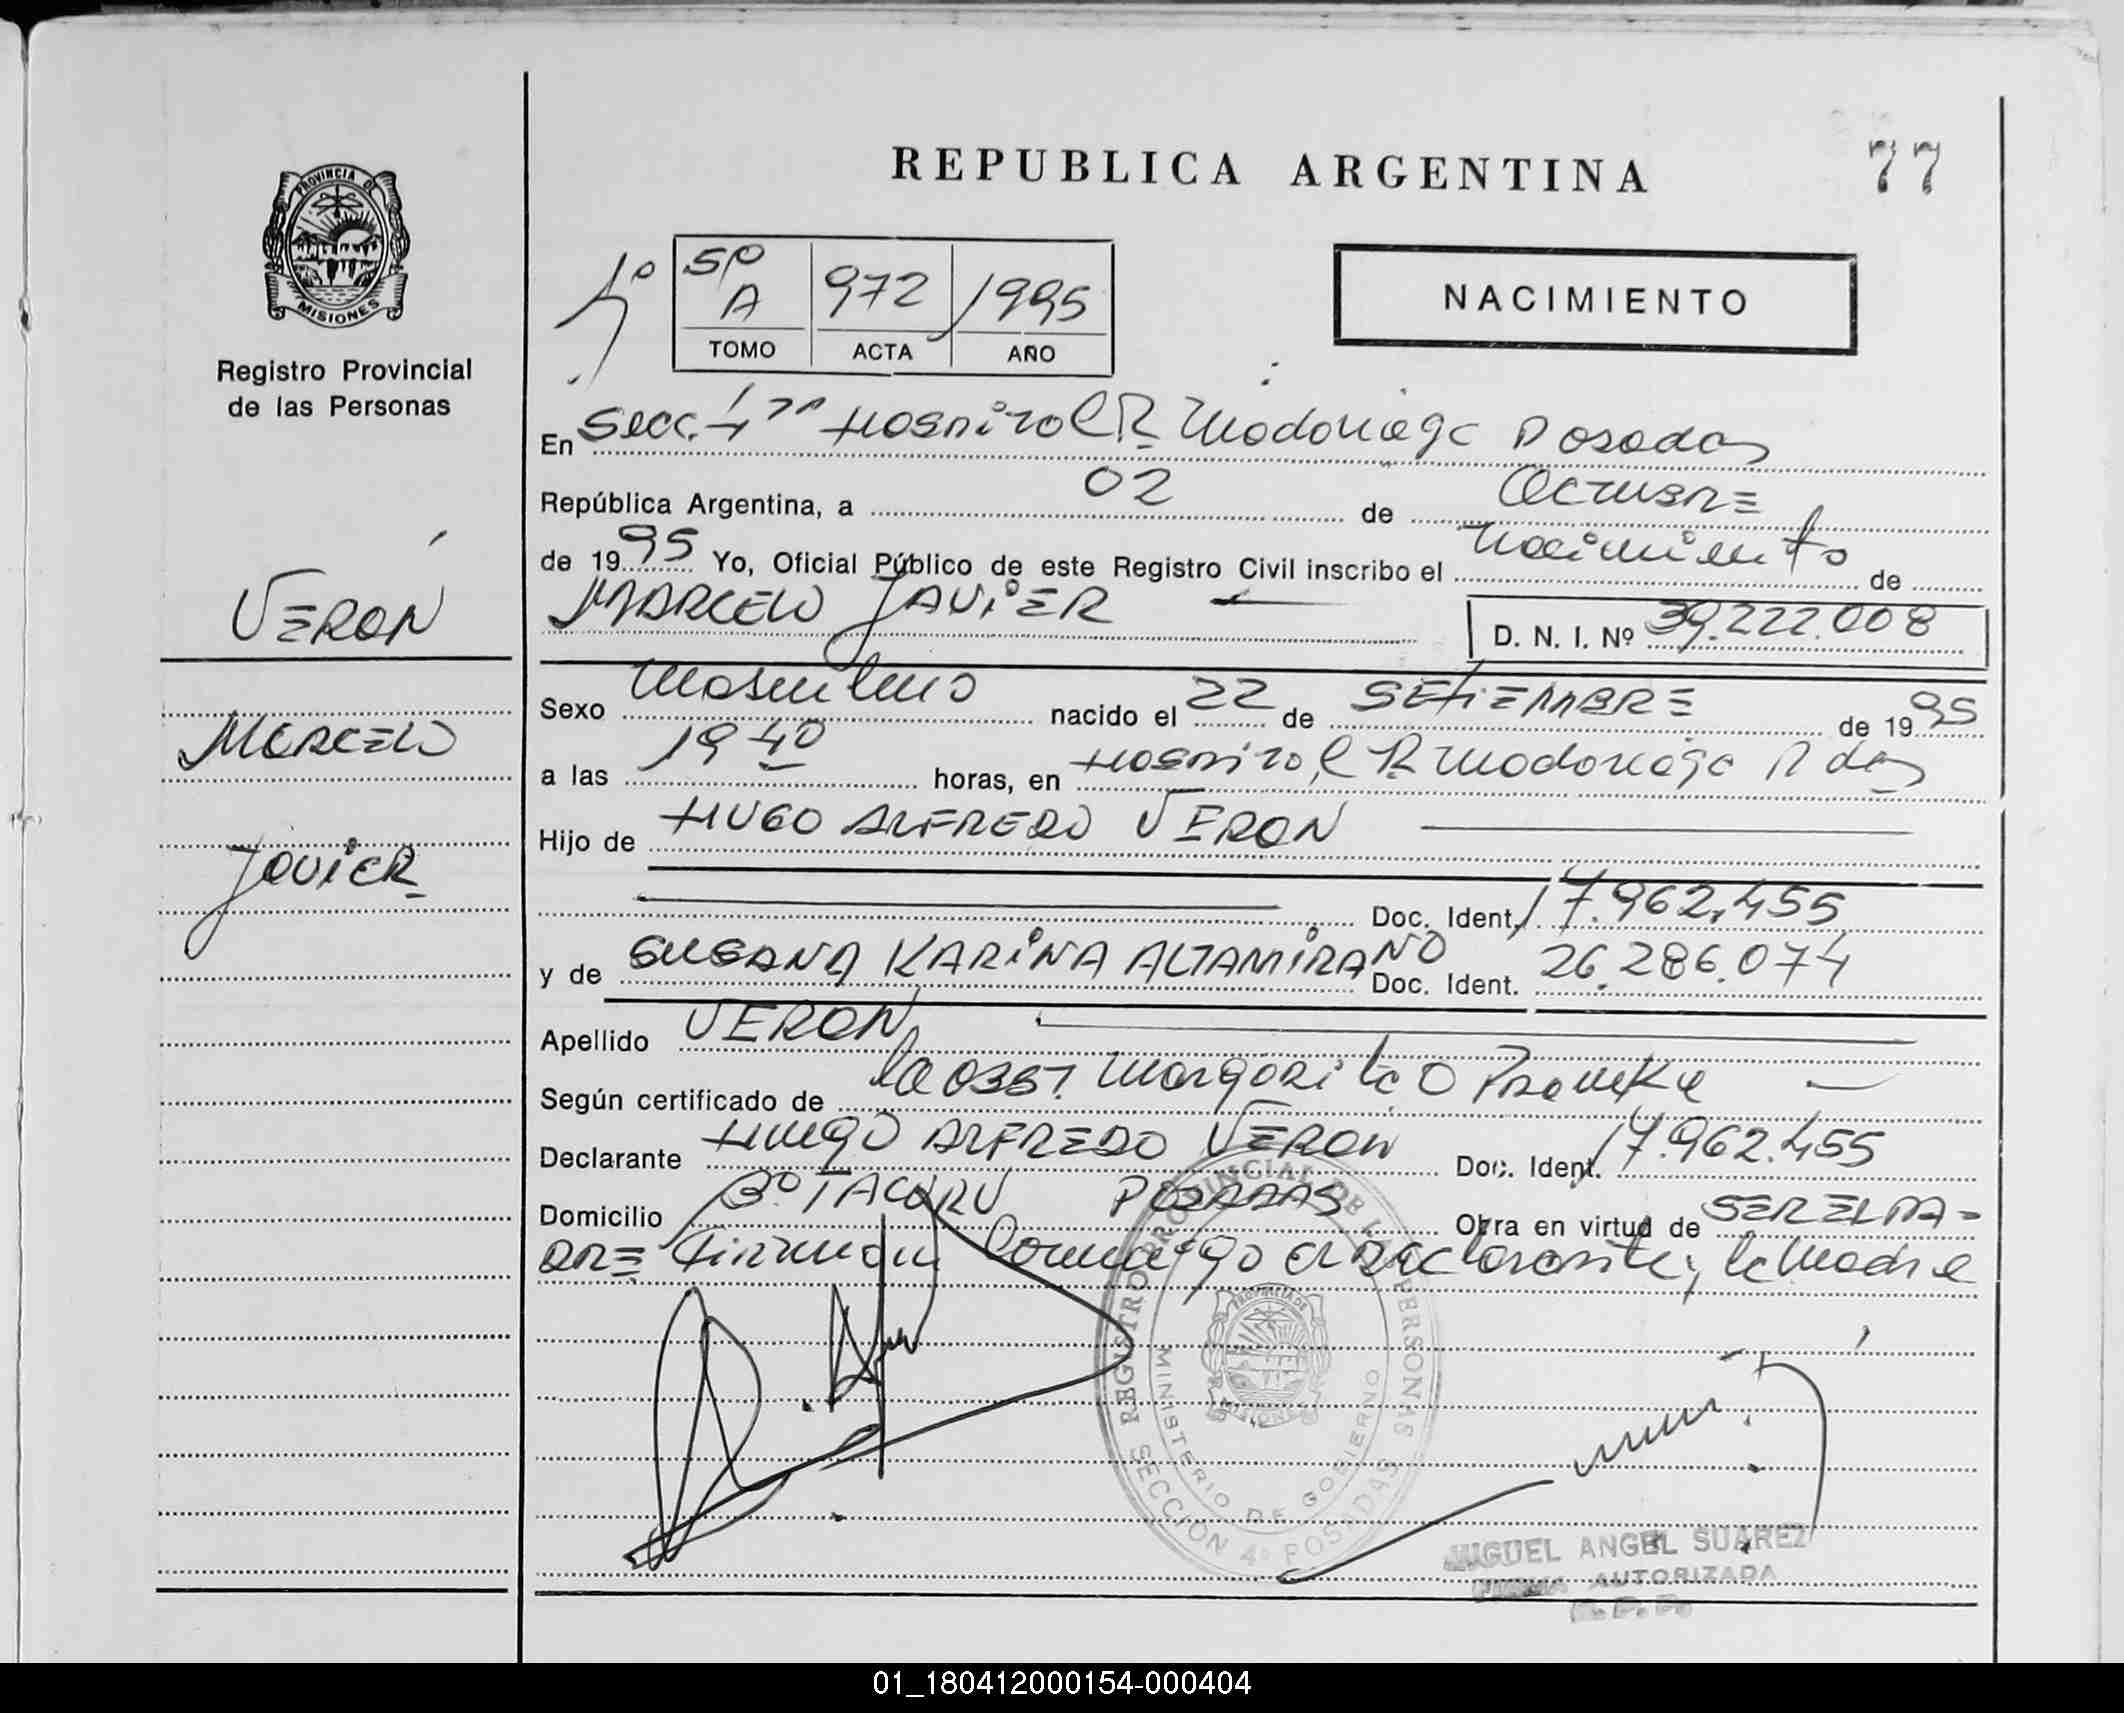 REPUBLICA ARGENTINA
77
PROVINCIA DE MISIONES
Registro Provincial
de las Personas
4º
5º A 972 1995
TOMO ACTA AÑO
NACIMIENTO
En Secc. 4ta Hospital R Madariaga Posadas
República Argentina, a 02 de Octubre
de 1995 Yo, Oficial Público de este Registro Civil inscribo el nacimiento de
MARCELO JAVIER D. N. I. Nº 39.222.008
VERON
Marcelo
Javier
Sexo Masculino nacido el 22 de SETIEMBRE de 1995
a las 19 40 horas, en Hospital R Madariaga Pdas
Hijo de HUGO ALFREDO VERON
Doc. Ident. 17.962.455
y de SUSANA KARINA ALTAMIRANO Doc. Ident. 26.286.074
Apellido VERON
Según certificado de la Obst. Margarita
Declarante Hugo ALFREDO VERON Doc. Ident. 17.962.455
Domicilio Bº TACURU POSADAS Obra en virtud de SER EL PA-
DRE Firman Conmigo el Declarante, la Madre
REGISTRO PROVINCIAL DE LAS PERSONAS
MINISTERIO DE GOBIERNO
SECCION 4º POSADAS
MIGUEL ANGEL SUAREZ
FIRMA AUTORIZADA
R. P. P.
01_180412000154-000404